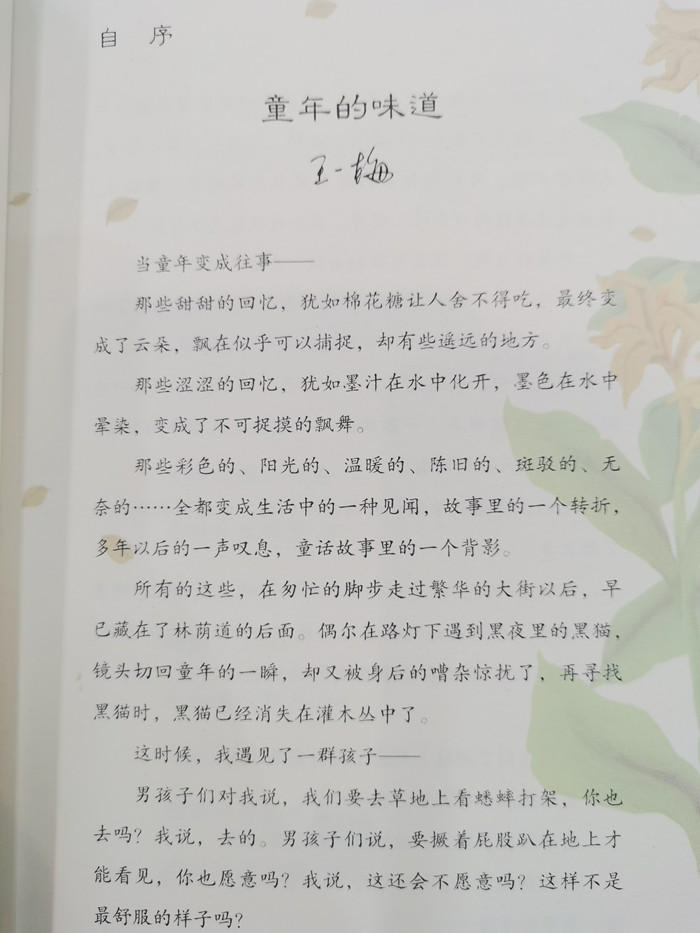 自 序
童年的味道
王一梅
当童年变成往事——
那些甜甜的回忆，犹如棉花糖让人舍不得吃，最终变
成了云朵，飘在似乎可以捕捉，却有些遥远的地方。
那些涩涩的回忆，犹如墨汁在水中化开，墨色在水中
晕染，变成了不可捉摸的飘舞。
那些彩色的、阳光的、温暖的、陈旧的、斑驳的、无
奈的……全都变成生活中的一种见闻，故事里的一个转折，
多年以后的一声叹息，童话故事里的一个背影。
所有的这些，在匆忙的脚步走过繁华的大街以后，早
已藏在了林荫道的后面。偶尔在路灯下遇到黑夜里的黑猫，
镜头切回童年的一瞬，却又被身后的嘈杂惊扰了，再寻找
黑猫时，黑猫已经消失在灌木丛中了。
这时候，我遇见了一群孩子——
男孩子们对我说，我们要去草地上看蟋蟀打架，你也
去吗？我说，去的。男孩子们说，要撅着屁股趴在地上才
能看见，你也愿意吗？我说，这还会不愿意吗？这样不是
最舒服的样子吗？